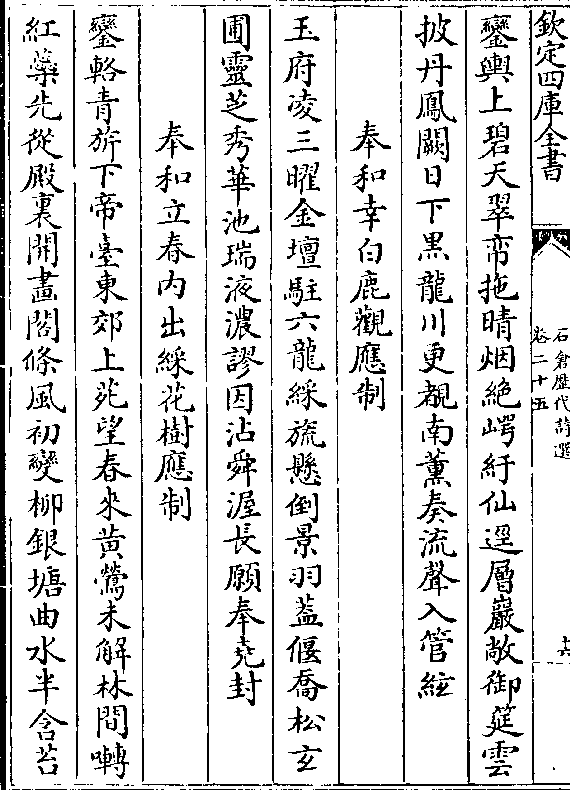 欽定四庫全書
石倉歴代詩選
卷二十五
鑾輿上碧天翠帟拖晴烟絶崿紆仙逕層巖敞御筵雲
披丹鳳闕日下黒龍川更覩南薫奏流聲入管絃
奉和幸白鹿觀應制
玉府凌三曜金壇駐六龍綵旒懸倒景羽葢偃喬松玄
圃靈芝秀華池瑞液濃謬因沾舜渥長願奉堯封
奉和立春内出綵花樹應制
鑾輅青旂下帝臺東郊上苑望春來黄鶯未解林間囀
紅蘂先從殿裏開畫閣條風初變柳銀塘曲水半含苔